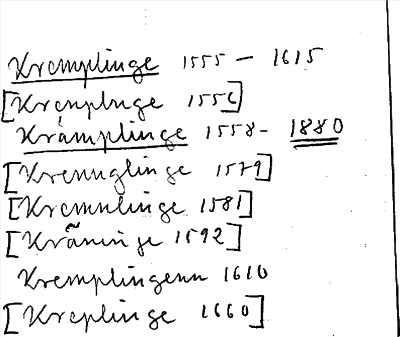 Kremplinge 1555 - 1615
[Kremplnge 1556]
Krämplinge 1558 - 1880
[Krennglinge 1579]
[Kremnlinge 1581]
[Kräninge 1592]
Kremplingenn 1610
[Kreplinge 1660]